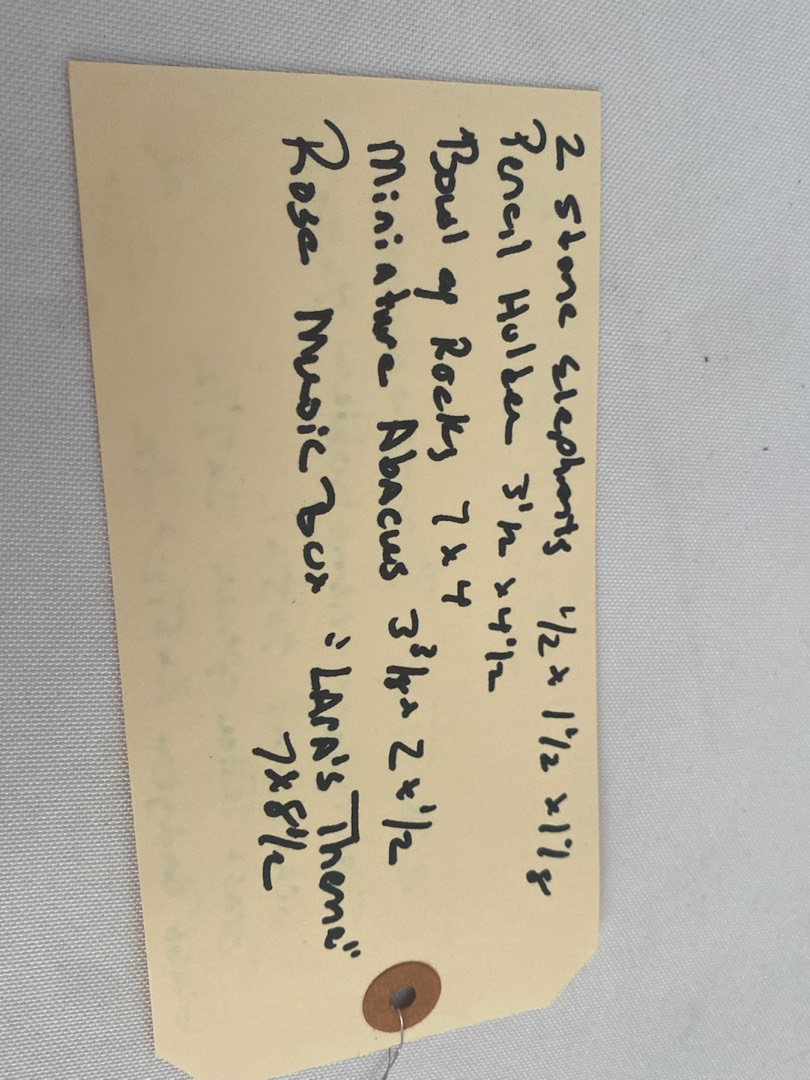 2 Stone Elephants 1/2 x 1 1/2 x 1 1/8
Pencil Holder 3 1/2 x 4 1/2
Bowl of Rocks 7 x 4
Miniature Abacus 3 3/4 x 2 x 1/2
Rose Music Box "LARA's Theme"
7 x 8 1/2